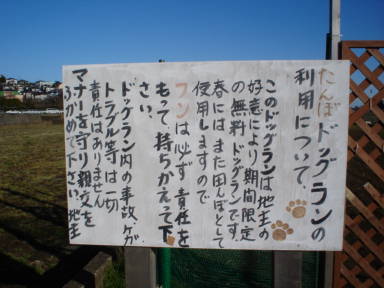 たんぼドッグランの
利用について、
このドッグランは地主の
好意により期間限定
の無料ドッグランです。
春にはまた田んぼとして
使用しますので
フンは必ず責任を
もって持ちかえって下
さい。
ドッグラン内の事故、ケガ
トラブル等は一切
責任はありません
マナーを守り親交を
ふかめて下さい。地主